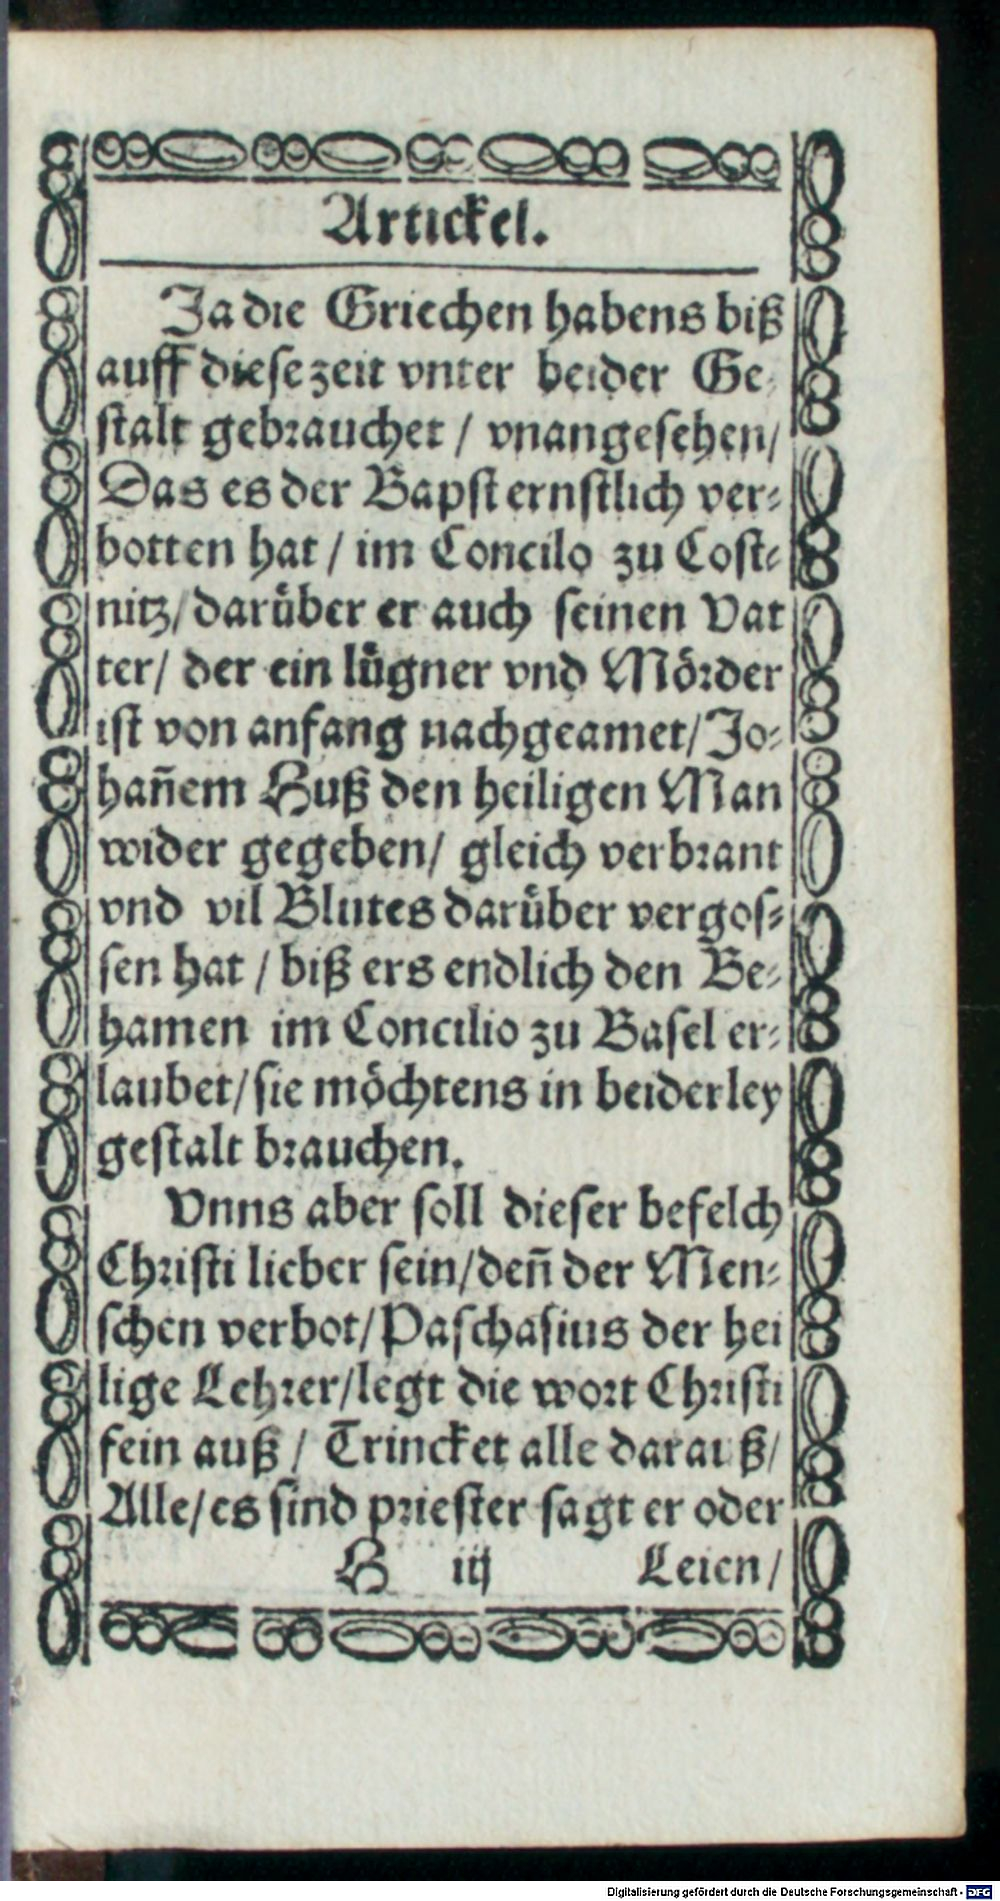 Artickel.
Ja die Griechen habens biß
auff diese zeit vnter beider Ge-
stalt gebrauchet / vnangesehen/
Das es der Bapst ernstlich ver-
botten hat / im Concilo zu Cost-
nitz/ darüber er auch seinen Vat
ter/ der ein lügner vnd Mörder
ist von anfang nachgeamet/ Jo-
hañem Huß den heiligen Man
wider gegeben/ gleich verbrant
vnd vil Blutes darüber vergos-
sen hat / biß ers endlich den Be-
hamen im Concilio zu Basel er-
laubet/ sie möchtens in beiderley
gestalt brauchen.
Vnns aber soll dieser befelch
Christi lieber sein/ deñ der Men-
schen verbot/ Paschasius der hei
lige Lehrer/ legt die wort Christi
fein auß / Trincket alle darauß/
Alle/ es sind priester sagt er oder
H iij Leien/
Digitalisierung gefördert durch die Deutsche Forschungsgemeinschaft - DFG